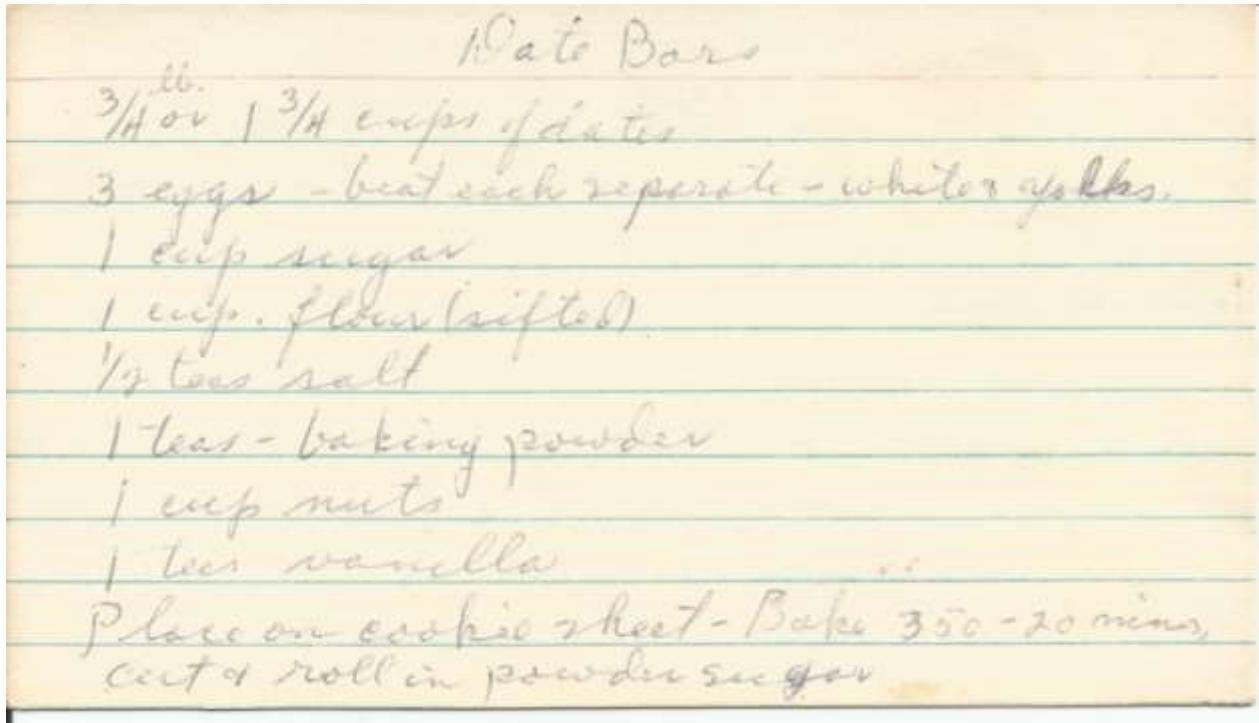 Date Bars
3/4 lb. or 1 3/4 cups of dates
3 eggs - beat each seperate - white & yolks.
1 cup sugar
1 cup. flour (sifted)
1/2 teas salt
1 teas - baking powder
1 cup nuts
1 teas vanilla
Place on cookie sheet - Bake 350 - 20 mins,
cut & roll in powder sugar